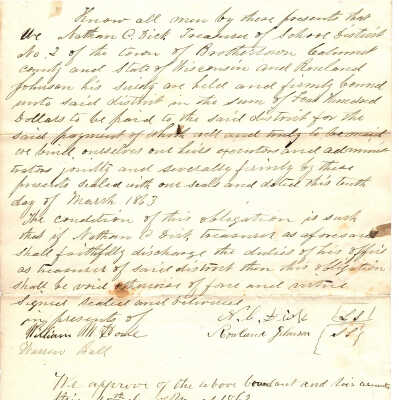 Know all men by these presents that
We Nathan C. Dick Treasurer of School District
No. 2 of the town of Brothertown Calumet
county and State of Wisconsin and Rowland
Johnson his surety are held and firmly bound
unto said district in the sum of Four Hundred
Dollars to be paid to the said district for the
said payment of which well and truly to be maid
we bind ourselves our heirs executors and adminis
trators jointly and severally firmly by these
presents sealed with our seals and dated this tenth
day of March 1863
The condition of this obligation is such
that if Nathan C. Dick treasurer as aforesaid
shall faithfully discharge the duties of his office
as treasurer of said district then this obligation
shall be void otherwise of force and virtue
Signed sealed and delivered
in presents of N. C. Dick L S
William H. Rowland Johnson L S
Warren
We approve of the above bond and
this 1863